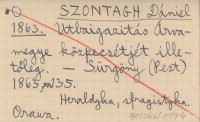 SZONTAGH Dániel
1863. Utbaigazitás Árva-
megye közpecsétjét ille-
tőleg. — Sürgöny (Pest)
1863, nr 35.
Heraldyka, sfragistyka.
Orawa.